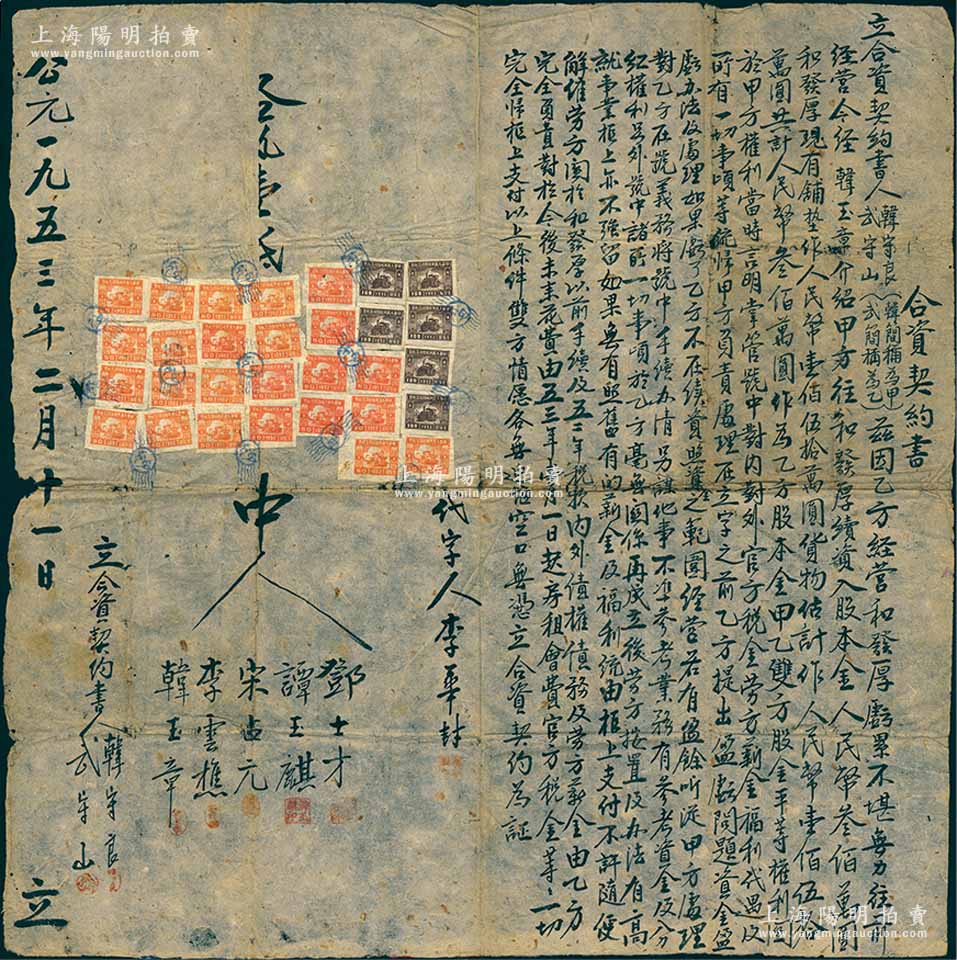 合資契約書
立合資契約書人韓守良(韓簡稱為甲)武守山(武簡稱為乙)茲因乙方經營和發厚虧累不堪無力往前
經營今經韓玉章介紹甲方往和發厚續資入股本金人民幣叁佰萬圓
和發厚現有舖墊作人民幣壹佰伍拾萬圓貨物估計作人民幣壹佰伍拾
萬圓共計人民幣叁佰萬圓作為乙方股本金甲乙雙方股金平等權利
於甲方權利當時言明掌管號中對內對外官方稅金勞方薪金福利代遇及
所有一切事項等統歸甲方負責處理在立字之前乙方提出盈虧問題資金盈
虧办法及處理如果虧了乙方不在續資照舊之範圍經营若有盈餘听從甲方處理
對乙方在號義務將號中手續办清另謀他事不準參考業務有參考資金及分
紅權利另外號中諸所一切事項於乙方毫無關係再成立後勞方按置及办法有高
就事業柜上亦不強留如果無有照舊有的薪金及福利統由柜上支付不許隨便
解雇勞方関於和發厚以前手續及五二年稅務內外債權債務及勞方薪金由乙方
完全負責對於今後未來花費由五三年 一日起房租會費官方稅金等一切
完全歸柜上支付以上條件雙方情愿各無 空口無憑立合資契約為証
代字人 李 華 封
中人
鄧士才
譚玉麒
宋占元
李雲樵
韓玉章
立合資契約書人 韓守良 武守山 立
公元一九五三年二月十一日
上海陽明拍賣
www.yangmingauction.com
上海陽明拍賣
www.yangmingauction.com
上海陽明拍賣
www.yangmingauction.com
上海陽明拍賣
www.yangmingauction.com